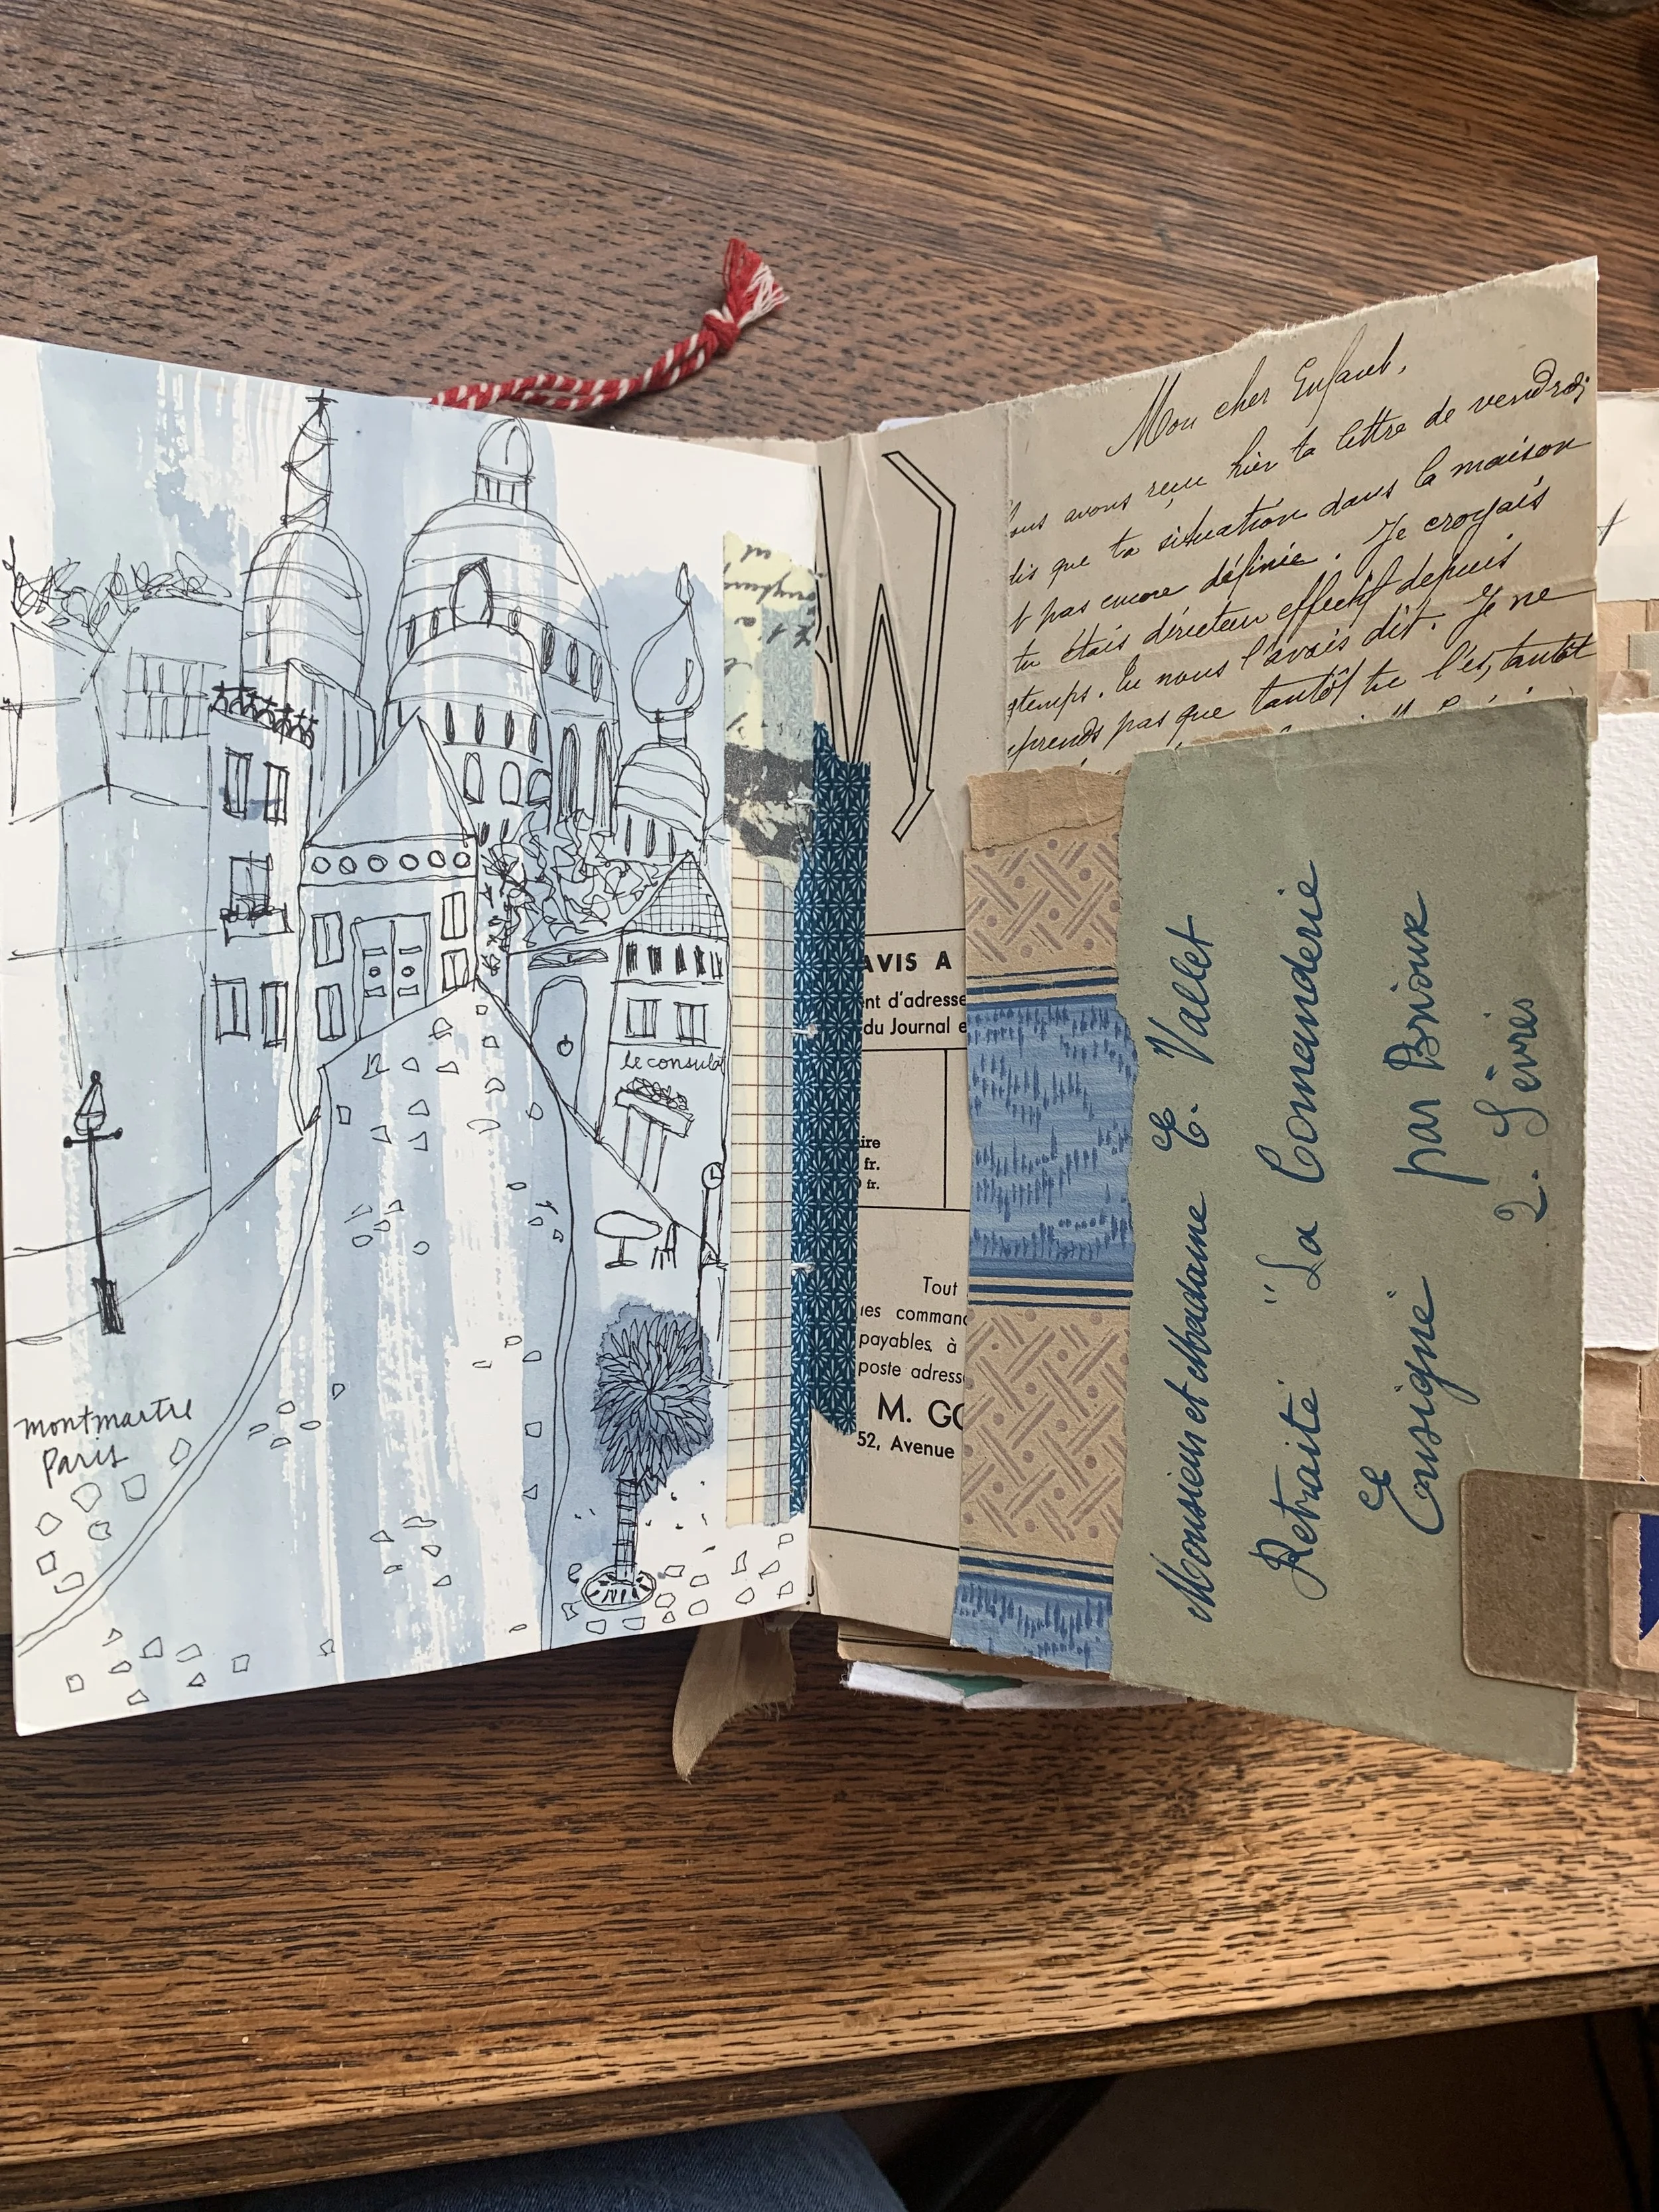 le consulat
montmartre
Paris
Mon cher Enfant,
avons reçu hier ta lettre de vendredi
dis que ta situation dans la maison
t pas encore définie. Je croyais
tu étais directeur effectif depuis
gtemps. Tu nous l'avais dit. Je ne
prends pas que tantôt tu l'es, tantôt
W
AVIS A
nt d'adresse
du Journal e
ire
fr.
fr.
Tout
les command
payables, à
poste adress
M. GO
52, Avenue
Monsieur et Madame E. Vallet
Retraité "La Commanderie
Ensigné par Brioux
2. Sèvres